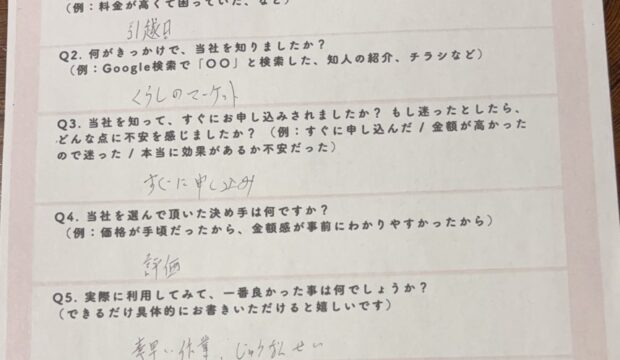 (例：料金が高くて困っていた、など)
引越日
Q2. 何がきっかけで、当社を知りましたか？
(例：Google検索で「〇〇」と検索した、知人の紹介、チラシなど)
くらしのマーケット
Q3. 当社を知って、すぐにお申し込みされましたか？ もし迷ったとしたら、
どんな点に不安を感じましたか？ (例：すぐに申し込んだ / 金額が高かった
ので迷った / 本当に効果があるか不安だった)
すぐに申し込み
Q4. 当社を選んで頂いた決め手は何ですか？
(例：価格が手頃だったから、金額感が事前にわかりやすかったから)
評価
Q5. 実際に利用してみて、一番良かった事は何でしょうか？
(できるだけ具体的にお書きいただけると嬉しいです)
素早い作業、じゅうなんせい